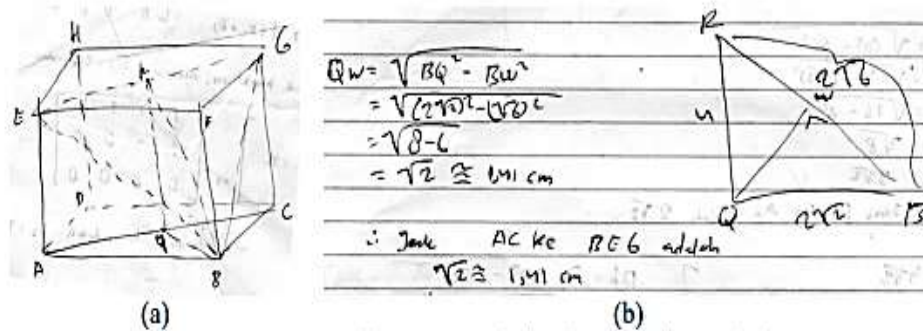 H
G
R
E
F
D
C
Q
A
B
(a)
QW = √BQ² - BW²
= √(2√2)² - (√6)²
= √8-6
= √2 ≅ 1,41 cm
∴ Jarak AC ke BEG adalah
√2 ≅ 1,41 cm
R
2√6
W
4
Q
2√2
B
(b)